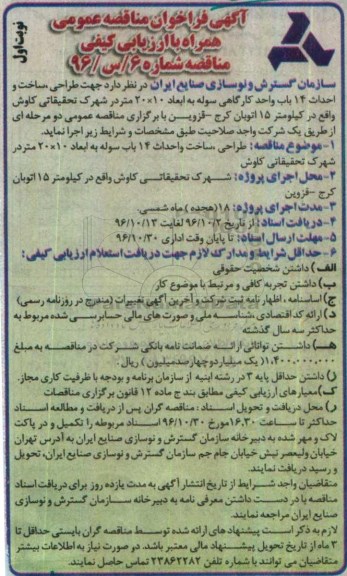 نوبت اول
آگهی فراخوان مناقصه عمومی
همراه با ارزیابی کیفی
مناقصه شماره ۶/س/۹۶
سازمان گسترش و نوسازی صنایع ایران در نظر دارد جهت طراحی، ساخت و
احداث ۱۴ باب واحد کارگاهی سوله به ابعاد ۱۰×۲۰ متر در شهرک تحقیقاتی کاوش
واقع در کیلومتر ۱۵ اتوبان کرج -قزوین با برگزاری مناقصه عمومی دو مرحله ای
از طریق یک شرکت واجد صلاحیت طبق مشخصات و شرایط زیر اجرا نماید.
۱-موضوع مناقصه: طراحی، ساخت واحداث ۱۴ باب سوله به ابعاد ۱۰×۲۰ متر در
شهرک تحقیقاتی کاوش
۲-محل اجرای پروژه: شهرک تحقیقاتی کاوش واقع در کیلومتر ۱۵اتوبان
کرج -قزوین
۳-مدت اجرای پروژه: ۱۸(هجده) ماه شمسی.
۴-دریافت اسناد: از تاریخ ۹۶/۱۰/۲ لغایت ۹۶/۱۰/۱۳
۵-مهلت ارسال اسناد: تا پایان وقت اداری ۹۶/۱۰/۳۰
۶-حداقل شرایط و مدارک لازم جهت دریافت استعلام ارزیابی کیفی:
الف) داشتن شخصیت حقوقی
ب) داشتن تجربه کافی و مرتبط با موضوع کار
ج) اساسنامه، اظهار نامه ثبت شرکت و آخرین آگهی تغییرات (مندرج در روزنامه رسمی)
د) ارائه کد اقتصادی، شناسه ملی و صورت های مالی حسابرسی شده مربوط به
حداکثر سه سال گذشته
هـ) داشتن توانائی ارائه ضمانت نامه بانکی شرکت در مناقصه به مبلغ
۱،۴۰۰،۰۰۰،۰۰۰(یک میلیارد و چهارصدمیلیون) ریال
ز) داشتن حداقل پایه ۳ در رشته ابنیه از سازمان برنامه و بودجه با ظرفیت کاری مجاز.
ک)معیارهای ارزیابی کیفی مطابق بند ج ماده ۱۲ قانون برگزاری مناقصات
ر) محل دریافت و تحویل اسناد: مناقصه گران پس از دریافت و مطالعه اسناد
حداکثر تا ساعت ۱۶،۳۰مورخ ۹۶/۱۰/۳۰ اسناد مربوطه را تکمیل و در پاکت
لاک و مهر شده به دبیرخانه سازمان گسترش و نوسازی صنایع ایران به آدرس تهران
خیابان ولیعصر نبش خیابان جام جم سازمان گسترش و نوسازی صنایع ایران، تحویل
و رسید دریافت نمایند.
متقاضیان واجد شرایط از تاریخ انتشار آگهی به مدت یازده روز برای دریافت اسناد
مناقصه با در دست داشتن معرفی نامه به دبیرخانه سازمان گسترش و نوسازی
صنایع ایران مراجعه نمایند.
لازم به ذکر است پیشنهاد های ارائه شده توسط مناقصه گران بایستی حداقل تا
۳ ماه از تاریخ تحویل پیشنهاد مالی معتبر باشد. در صورت نیاز به اطلاعات بیشتر
متقاضیان می توانند با شماره تلفن ۲۳۸۶۲۲۸۲ تماس حاصل نمایند.